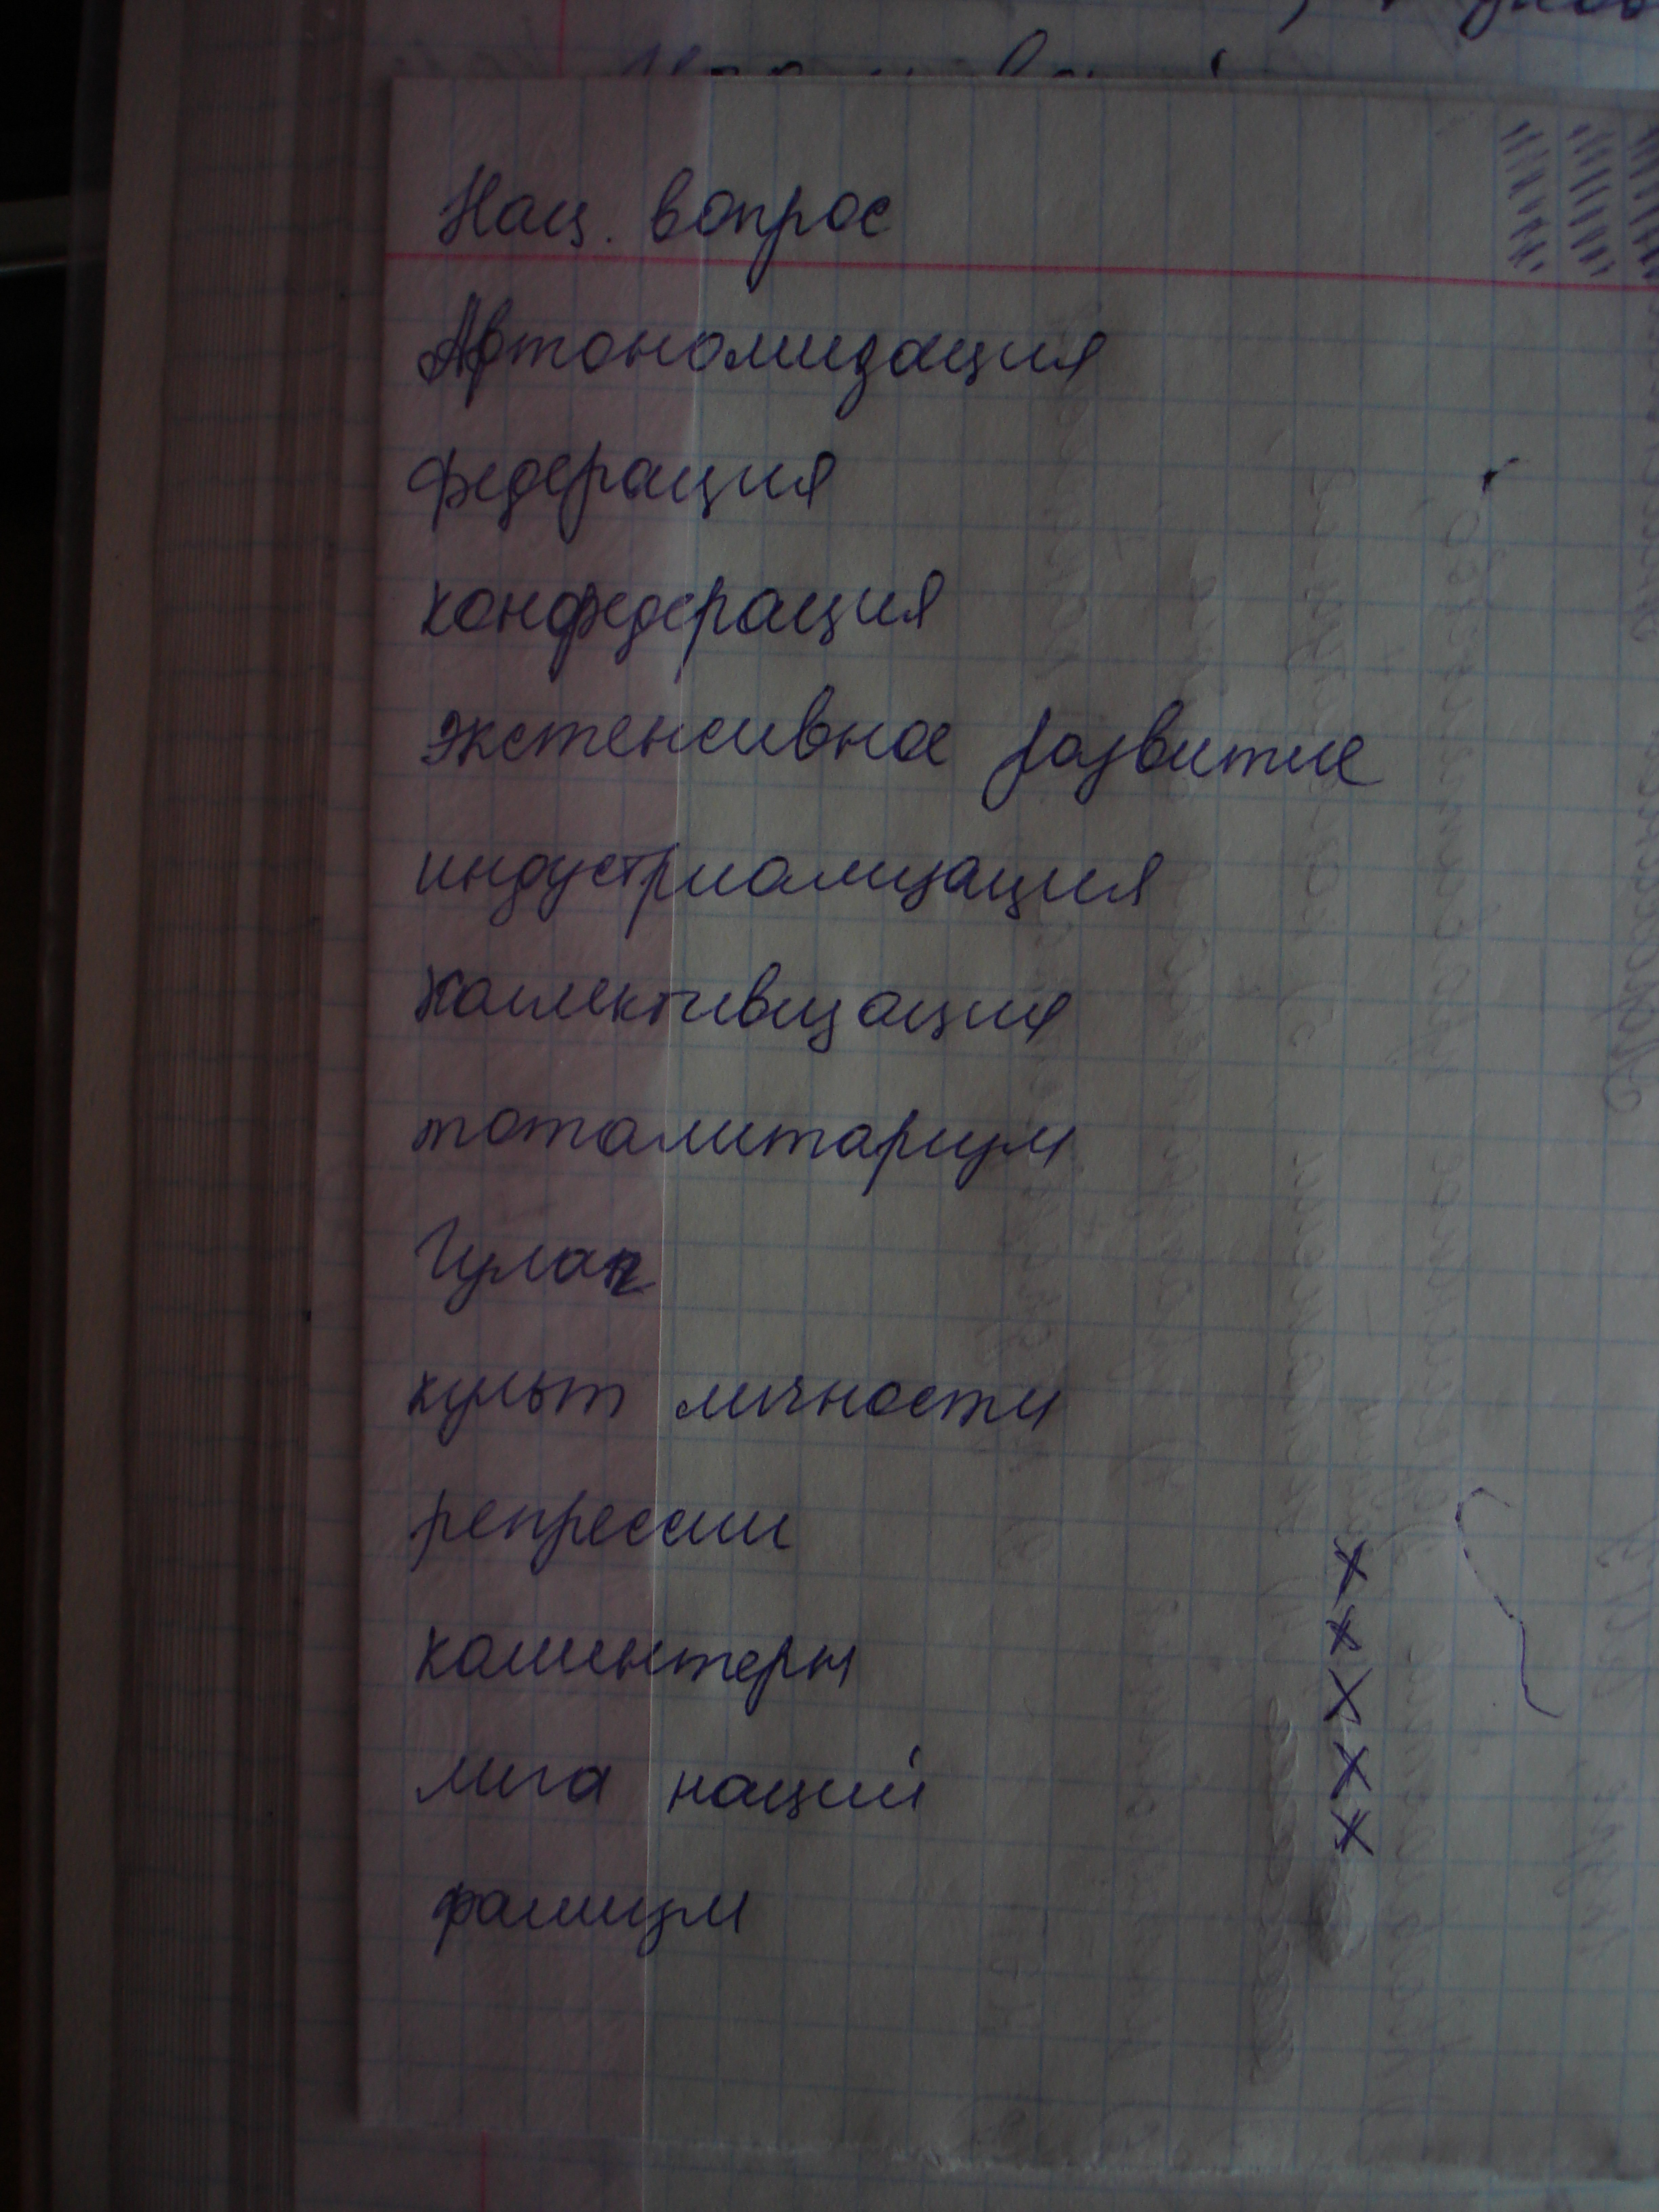 Нац. вопрос
Автономизация
федерация
конфедерация
экстенсивное развитие
индустриализация
коллективизация
тоталитаризм
Гулаг
культ личности
репрессии
коминтерн
лига наций
фашизм